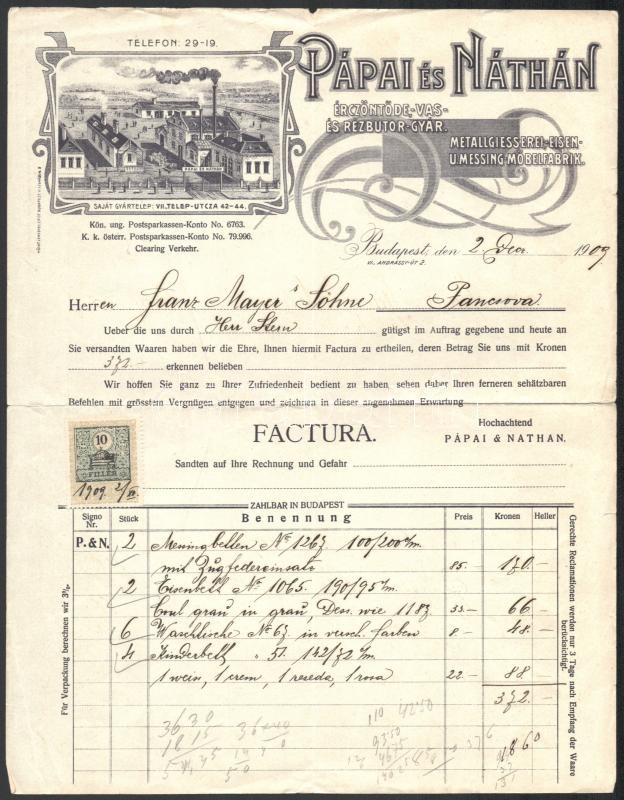 TELEFON: 29-19.
PÁPAI ÉS NÁTHÁN
PÁPAI ÉS NÁTHÁN
ÉRCZÖNTÖDE,-VAS-
ÉS RÉZBUTOR-GYÁR.
METALLGIESSEREI,-EISEN-
U. MESSING MÖBELFABRIK.
SAJÁT GYÁRTELEP: VII, TELEP-UTCZA 42-44.
Kön. ung. Postsparkassen-Konto No. 6763.
K. k. österr. Postsparkassen-Konto No. 79.996.
Clearing Verkehr.
Budapest, den 2. Dec. 1909
VI., ANDRÁSSY-ÚT 2.
Herren Franz Mayer's Söhne Pancsova
Ueber die uns durch Herr Stern gütigst im Auftrag gegebene und heute an
Sie versandten Waaren haben wir die Ehre, Ihnen hiermit Factura zu ertheilen, deren Betrag Sie uns mit Kronen
372.— erkennen belieben
Wir hoffen Sie ganz zu Ihrer Zufriedenheit bedient zu haben, sehen daher Ihren ferneren schätzbaren
Befehlen mit grösstem Vergnügen entgegen und zeichnen in dieser angenehmen Erwartung
Hochachtend
PÁPAI & NATHAN.
FACTURA.
10
FILLÉR
1909 2/XII
Sandten auf Ihre Rechnung und Gefahr
ZAHLBAR IN BUDAPEST
Signo Nr. Stück Benennung Preis Kronen Heller
P. & N. 2 Messingbetten No 1267 100/200 c/m.
mit Zugfedereinsatz 85.— 170.—
2 Eisenbett No 1065. 190/95 c/m.
Coul. grau in grau, Dess. wie 1187 33.— 66.—
6 Waschtische No 67 in versch. Farben 8.— 48.—
4 Kinderbett " 51. 142/72 c/m.
1 weis, 1 crem, 1 reseda, 1 rosa 22.— 88.—
372.—
Für Verpackung berechnen wir 3%.
Gerechte Reclamationen werden nur 3 Tage nach Empfang der Waare
berücksichtigt.